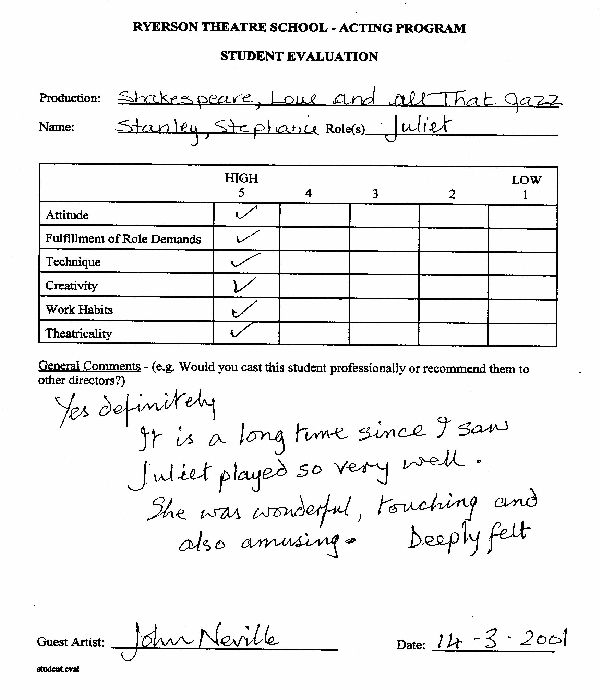 RYERSON THEATRE SCHOOL - ACTING PROGRAM
STUDENT EVALUATION
Production: Shakespeare, Love and all That Jazz
Name: Stanley, Stephanie Role(s) Juliet
HIGH LOW
5 4 3 2 1
Attitude ✓
Fulfillment of Role Demands ✓
Technique ✓
Creativity ✓
Work Habits ✓
Theatricality ✓
General Comments - (e.g. Would you cast this student professionally or recommend them to
other directors?)
Yes definitely
It is a long time since I saw
Juliet played so very well.
She was wonderful, touching and
also amusing. Deeply felt
Guest Artist: John Neville Date: 14-3-2001
student.eval